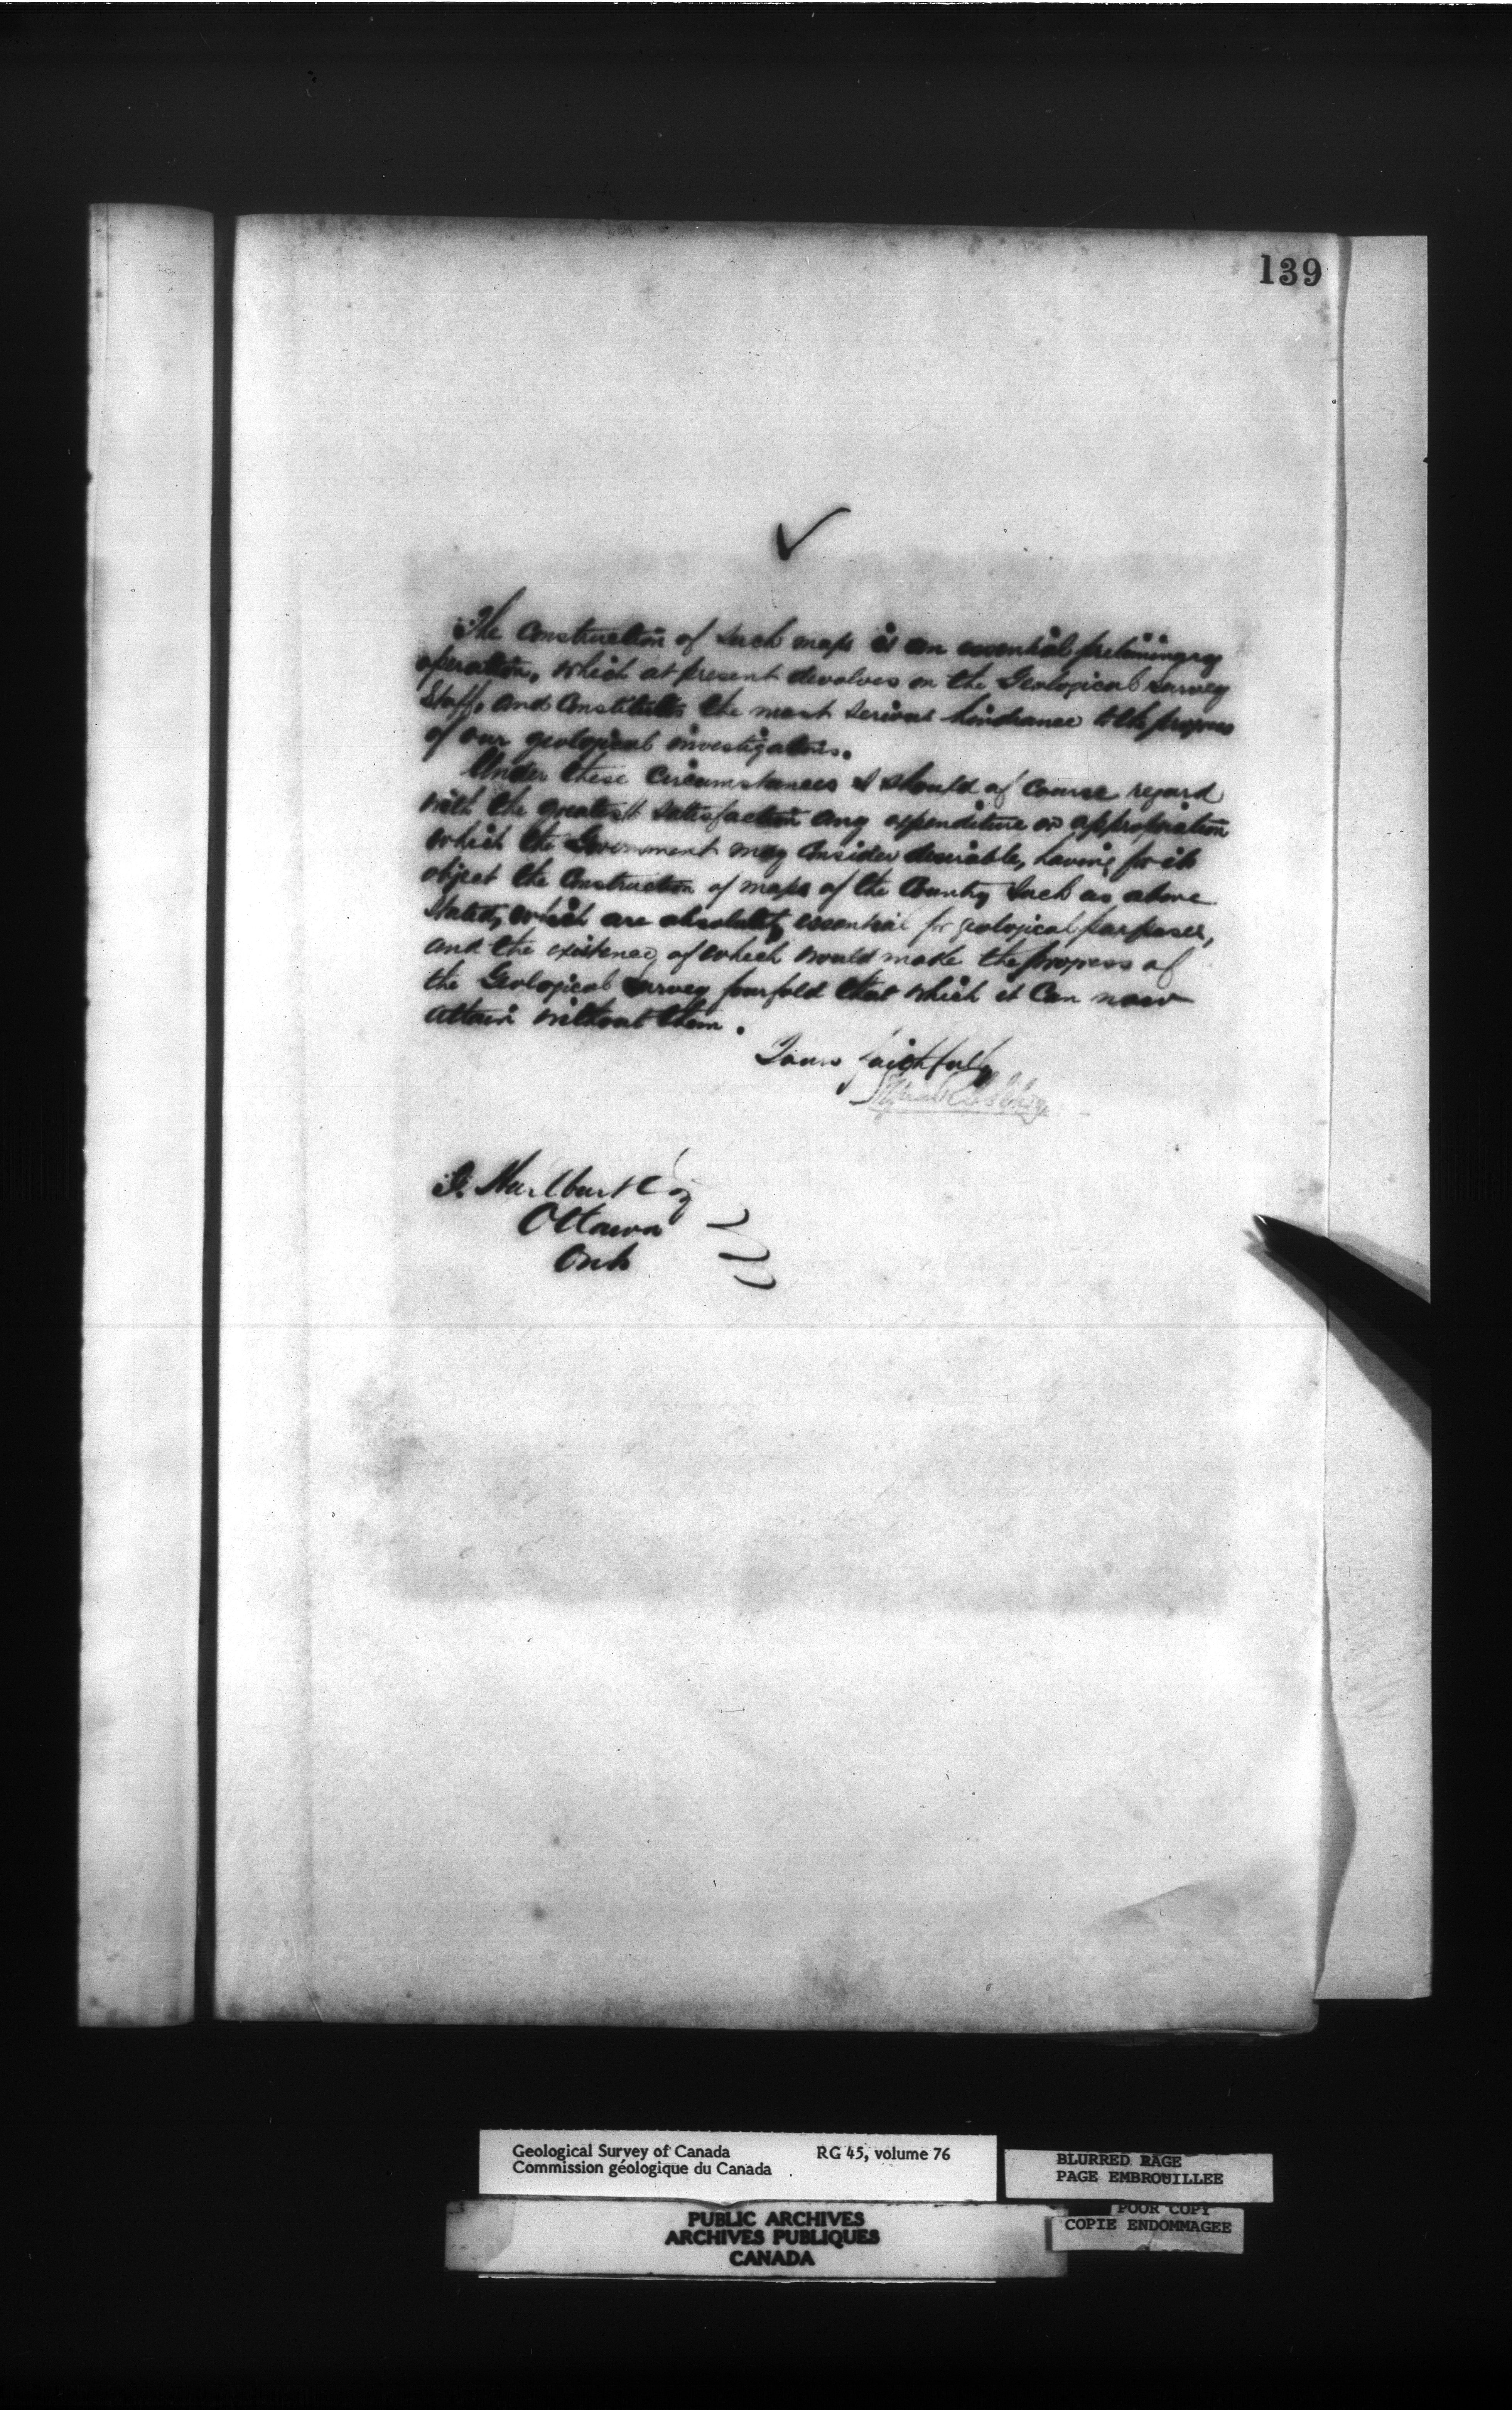 139
The Construction of such maps is an essential preliminary
operation, which at present devolves on the Geological Survey
Staff, and Constitutes the most serious hindrance to the progress
of our geological investigations.
Under these Circumstances I should of Course regard
with the greatest satisfaction any expenditure or appropriation
which the Government may Consider desirable, having for its
object the Construction of maps of the Country such as above
stated, which are absolutely essential for geological purposes,
and the existence of which would make the progress of
the Geological Survey fourfold that which it Can now
attain without them.
Yours faithfully
Ottawa
Ont
Geological Survey of Canada RG 45, volume 76
Commission géologique du Canada
BLURRED PAGE
PAGE EMBROUILLEE
POOR COPY
COPIE ENDOMMAGEE
PUBLIC ARCHIVES
ARCHIVES PUBLIQUES
CANADA